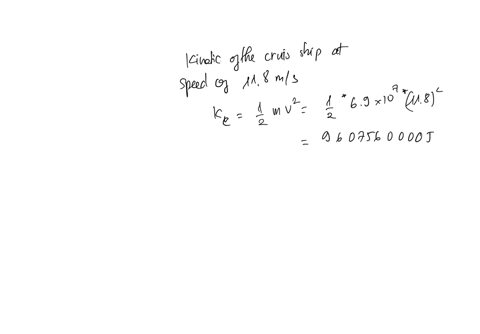 Kinatic of the cruis ship at
speed of 11.8 m/s
KE = 1/2 m v² = 1/2 * 6.9 × 10⁷ * (11.8)²
= 9607560000J